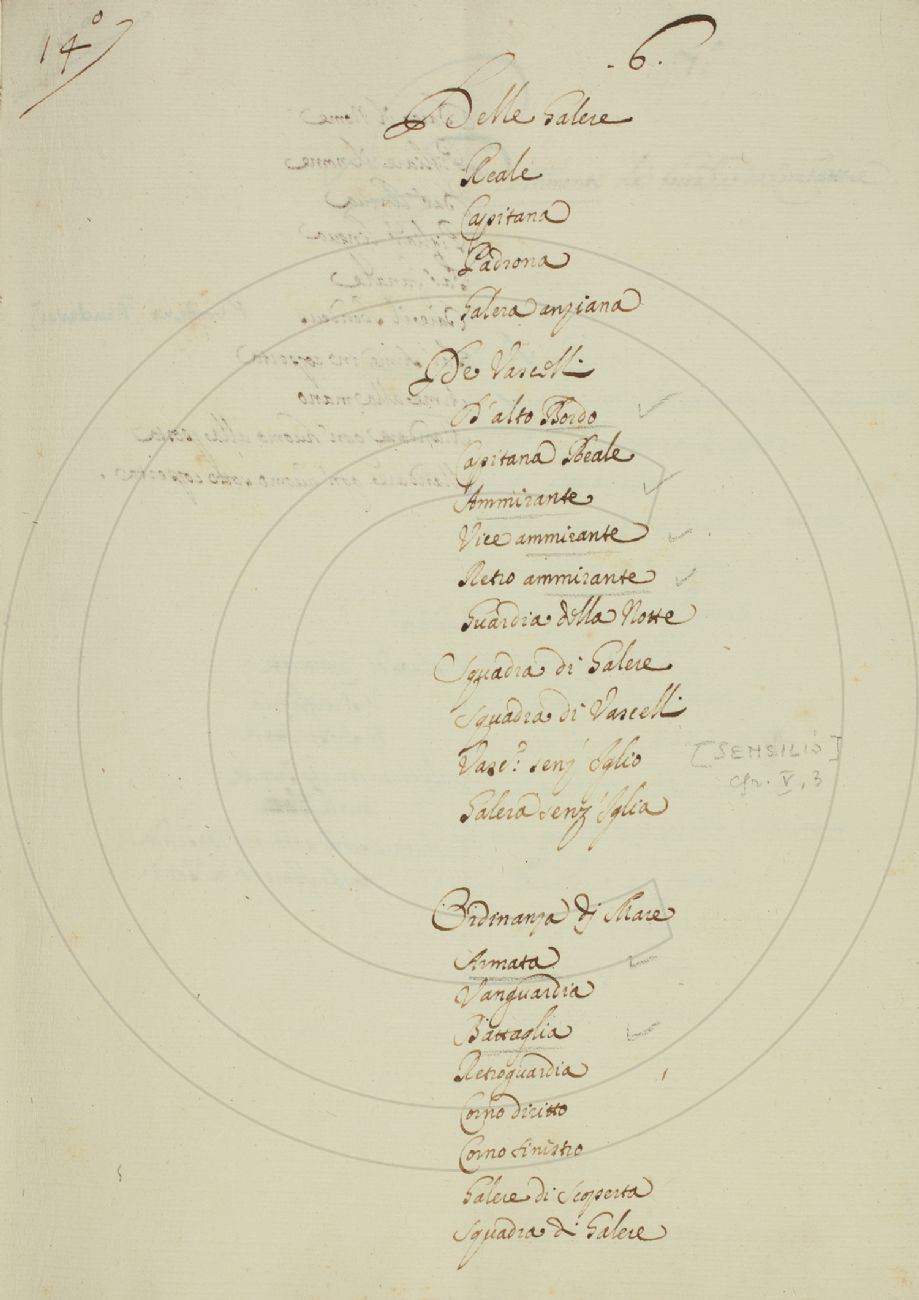 14º
. 6 .
Delle Galere
Reale
Capitana
Padrona
Galera anziana
De Vascelli
D'alto Bordo
Capitana Reale
Ammirante
Vice ammirante
Retro ammirante
Guardia della Notte
Squadra di Galere
Squadra di Vascelli
Vasc.º senz' Iglio
[SENSILIO]
Galera senz' Iglia
cfr. V, 3
Ordinanza dj Mare
Armata
Vanguardia
Battaglia
Retroguardia
Corno diritto
Corno sinistro
Galere di scoperta
Squadra di Galere